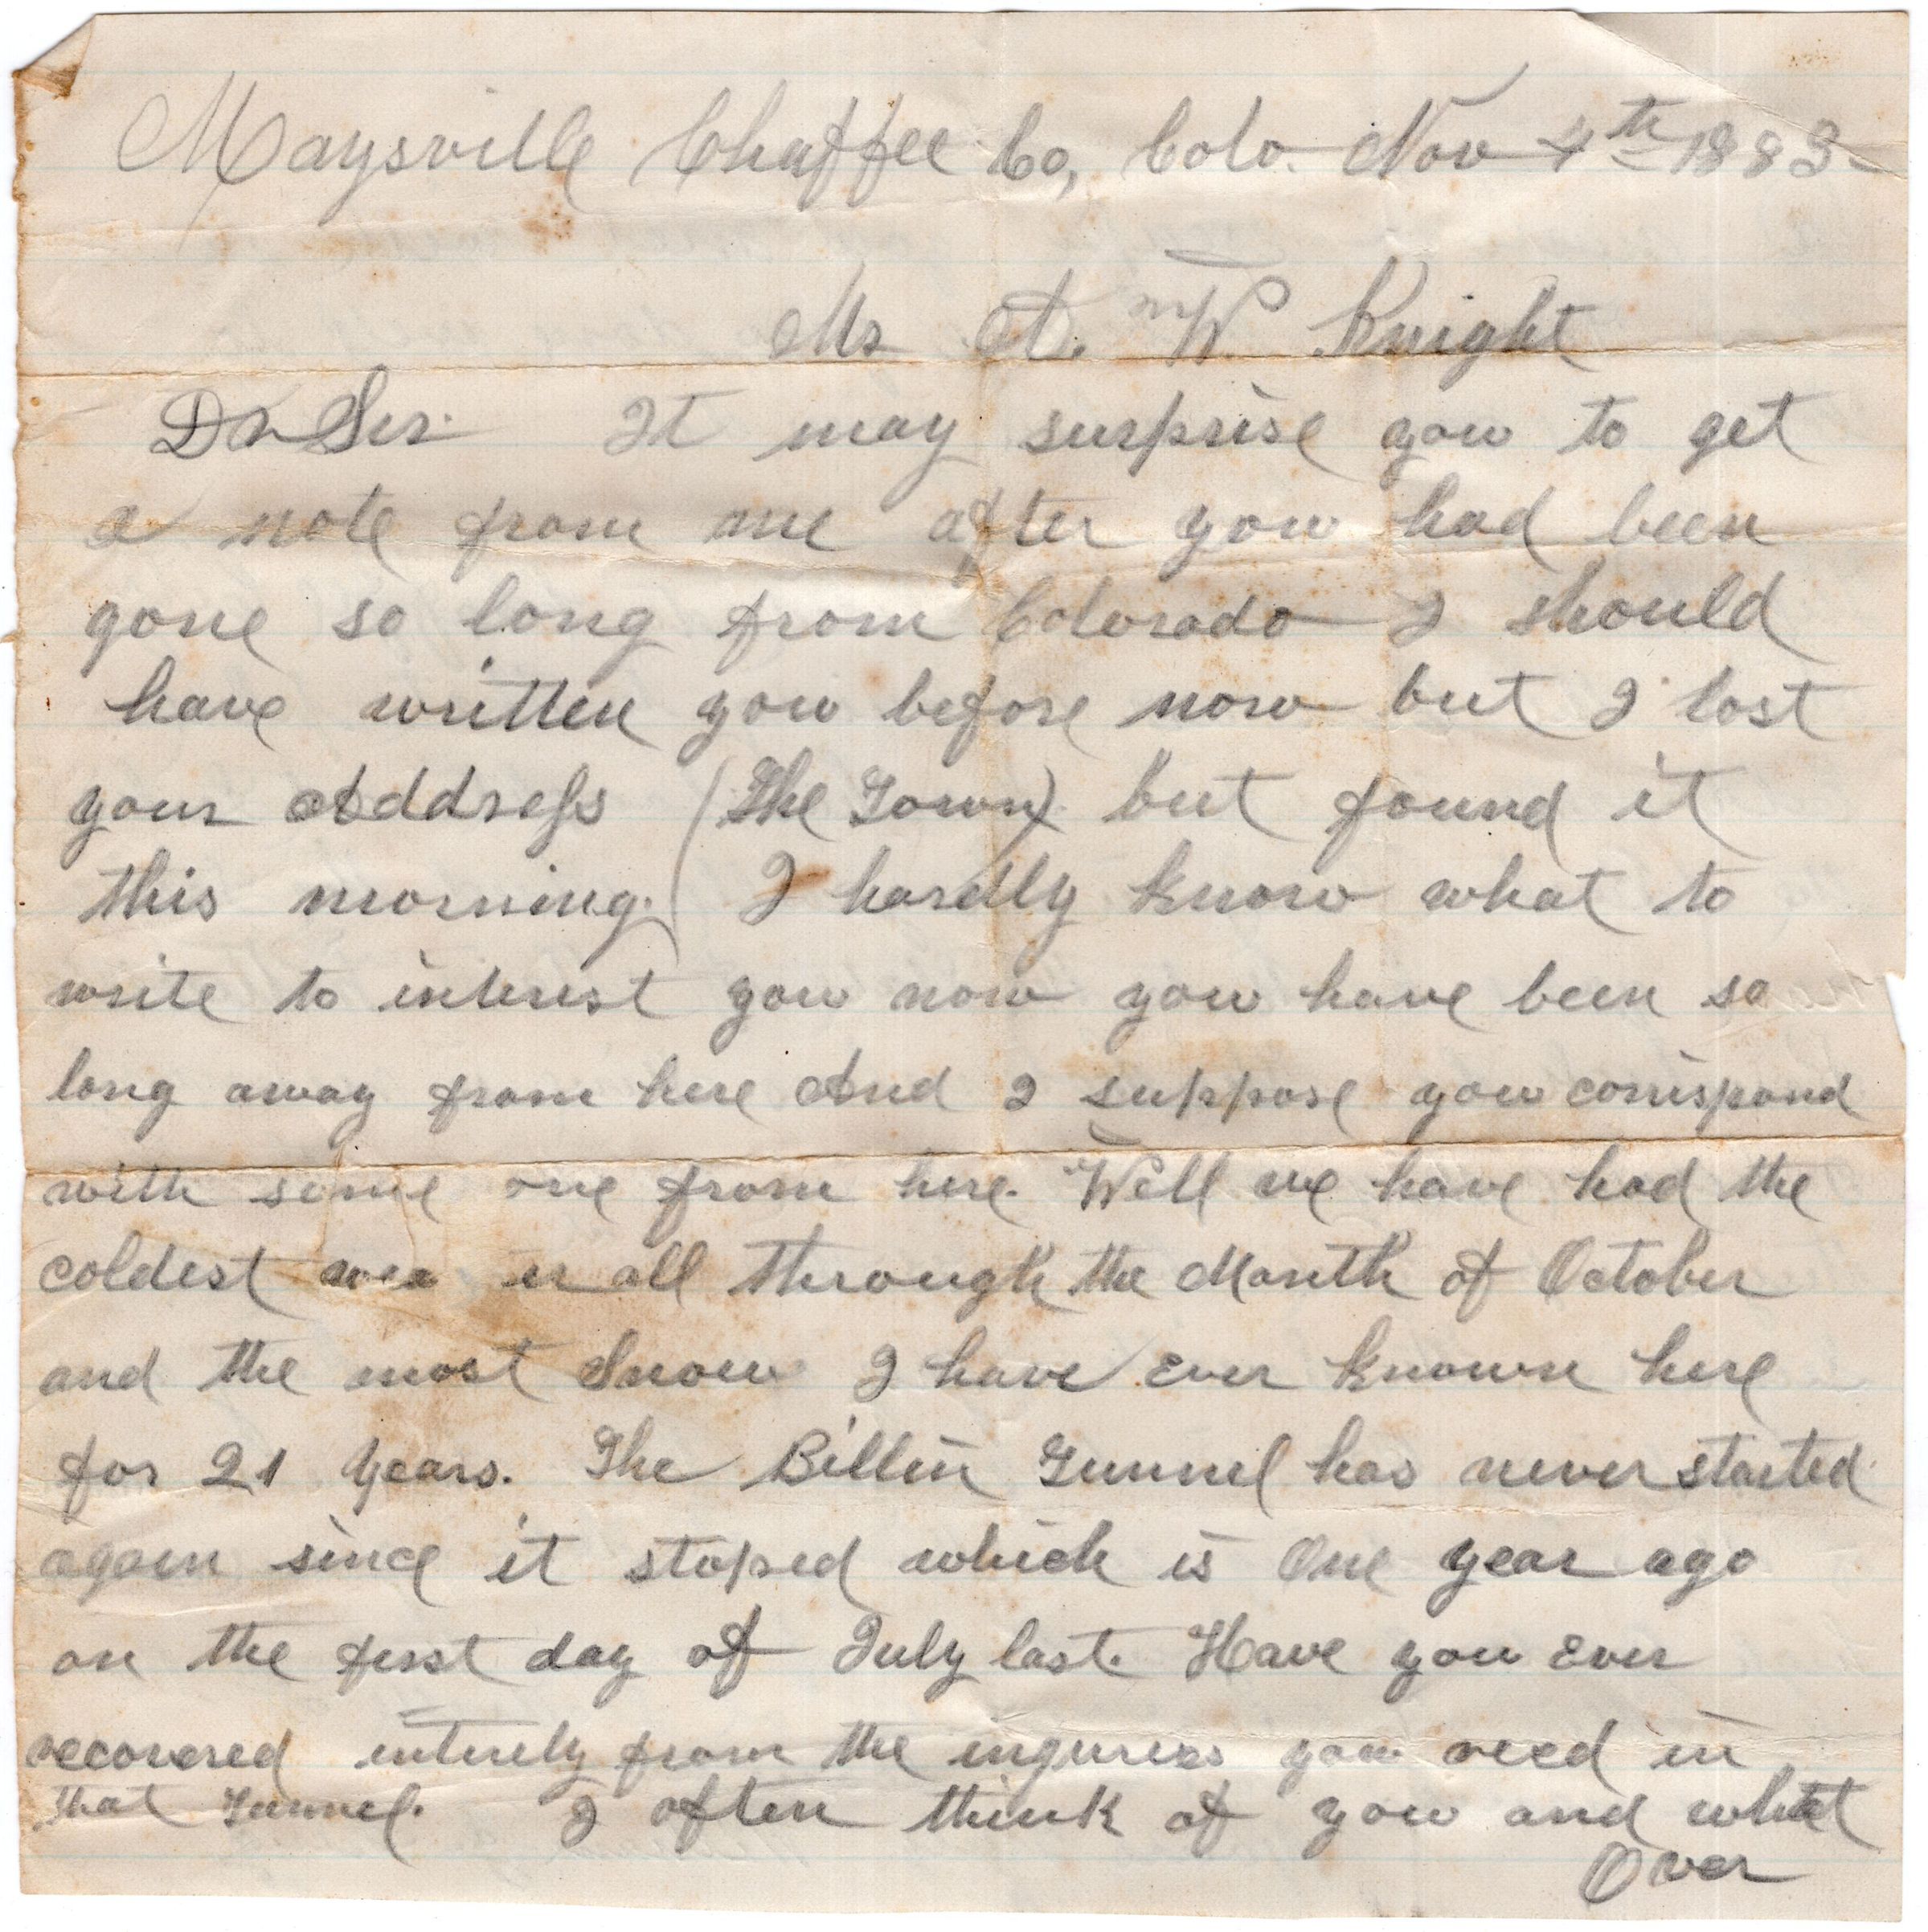 Maysville Chaffee Co, Colo. Nov 4th 1883
Mr A. W Knight
Dr Sir. It may surprise you to get
a note from me after you had been
gone so long from Colorado I should
have written you before now but I lost
your Address (The Town) but found it
this morning. I hardly know what to
write to interest you now you have been so
long away from here And I suppose you corrispond
with some one from here. Well we have had the
coldest wea er all through the Month of October
and the most Snow I have ever known here
for 21 years. The Billin Tunnel has never started
again since it stoped which is One year ago
on the first day of July last. Have you Ever
recovered intirely from the injuries you recd in
that Tunnel. I often think of you and what
Over